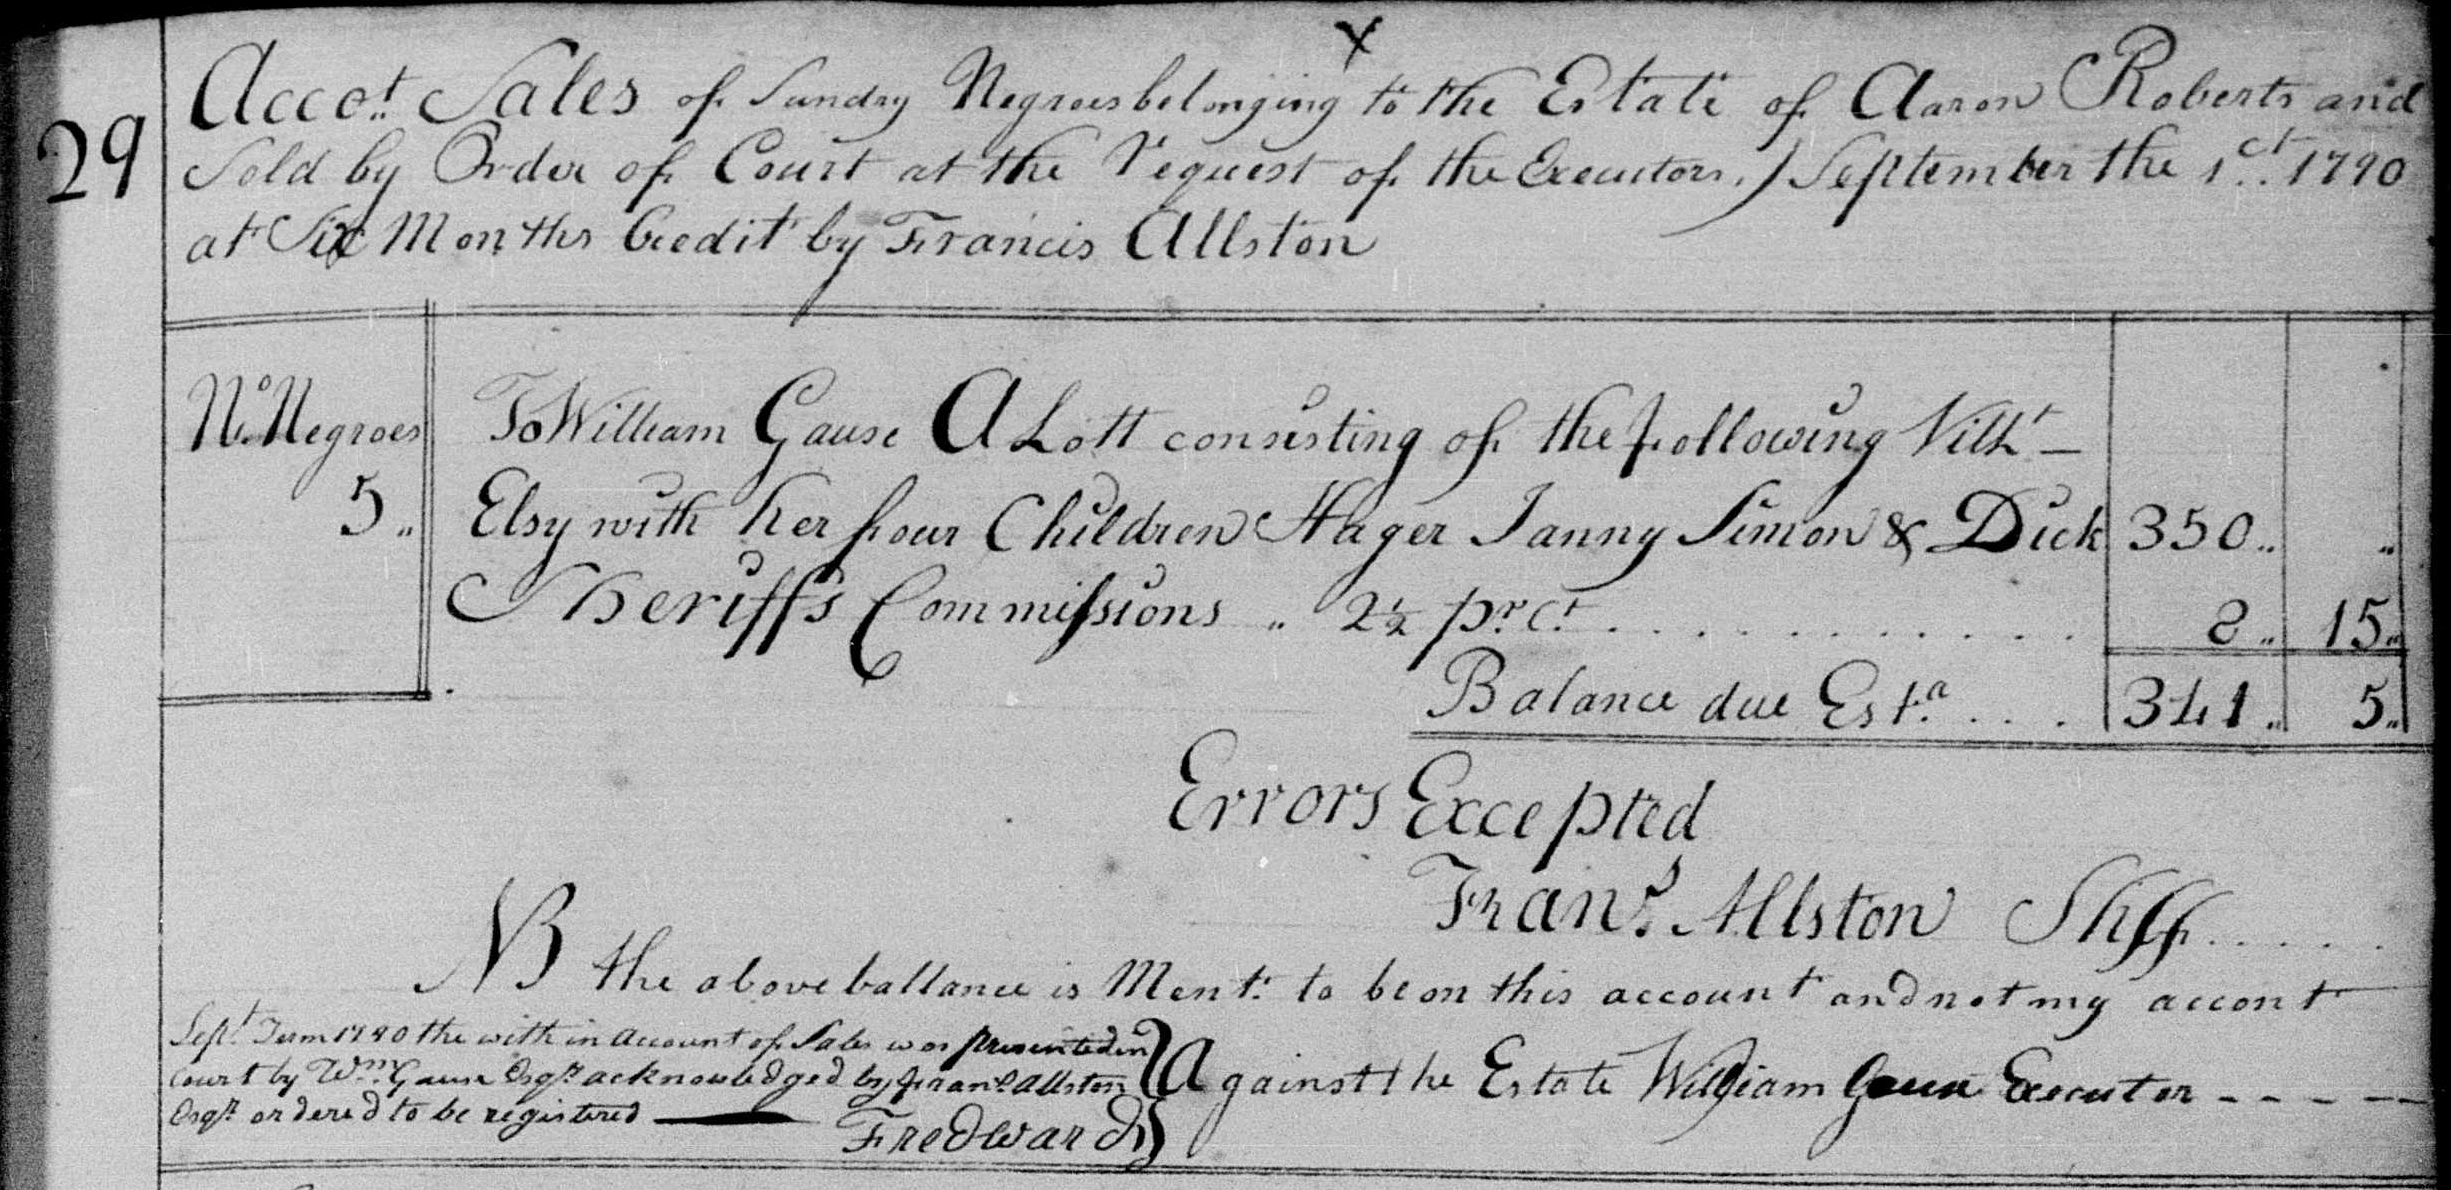 x
29
Acco.t Sales of Sundry Negroes belonging to the Estate of Aaron Roberts and
Sold by Order of Court at the Request of the Executors.) September the 1st 1790
at Six Months Credit by Francis Allston
No. Negroes
To William Gause A Lott consisting of the following Vizt —
5 „ Elsy with her four Children Hager Janny Simon & Dick 350 „ „
Sheriffs Commissions „ 2½ pr. Ct. . . . . . . . . . . . 8 „ 15 „
Balance due Esta. . . . 341 „ 5 „
Errors Excepted
Frans. Allston Shff . . . . .
NB the above ballance is Ment. to be on this account and not my accont
Against the Estate William Gause Executor - - - - -
Sept. Term 1790 the within Account of Sales was presented in
Court by Wm. Gause Esqr. acknowledged by Frans. Allston
Esqr. ordered to be registered ——
Fred Ward